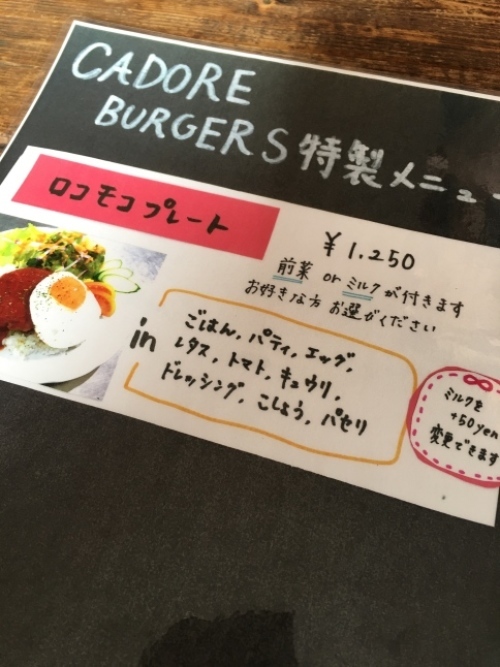 CADORE
BURGERS 特製メニュー
ロコモコプレート
¥1.250
前菜 or ミルクが付きます
お好きな方 お選びください
in
ごはん, パティ, エッグ,
レタス, トマト, キュウリ,
ドレッシング, こしょう, パセリ
ミルクを
+50yen
変更できます